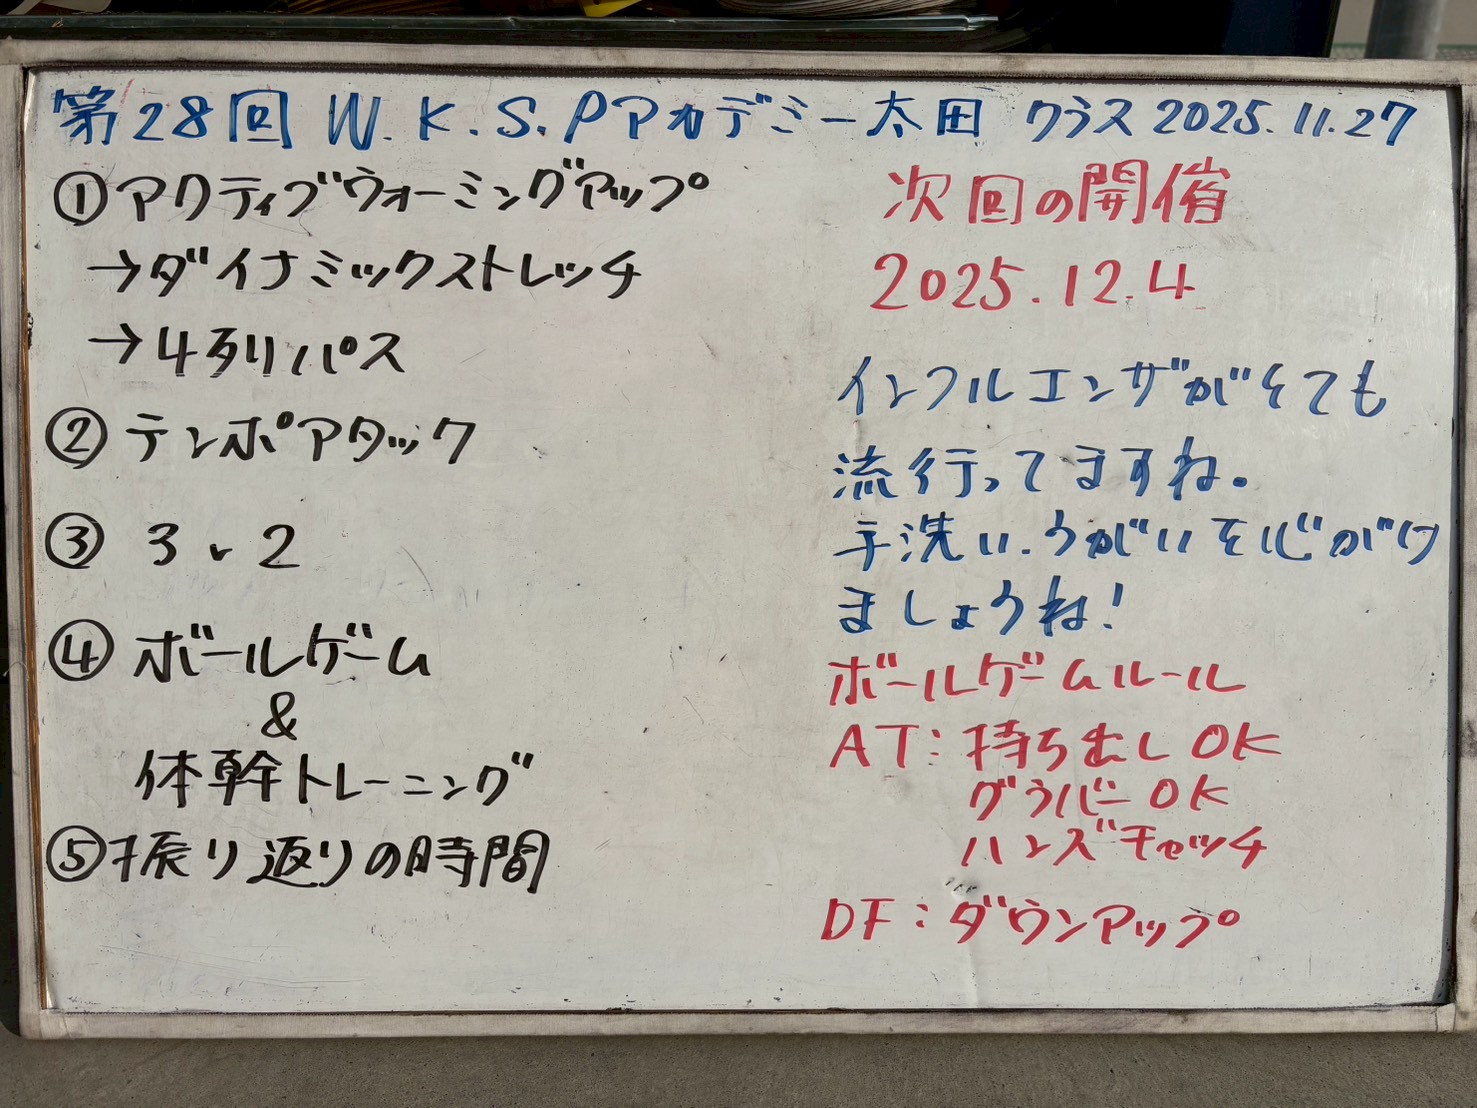 第28回 W.K.S.Pアカデミー太田 クラス 2025.11.27
①アクティブウォーミングアップ
→ダイナミックストレッチ
→4列パス
② テンポアタック
③ 3v2
④ ボールゲーム
&
体幹トレーニング
⑤振り返りの時間
次回の開催
2025.12.4
インフルエンザがとても
流行ってますね。
手洗い.うがいを心がけ
ましょうね!
ボールゲームルール
AT:持ち出しOK
グラバーOK
ハンズキャッチ
DF:ダウンアップ